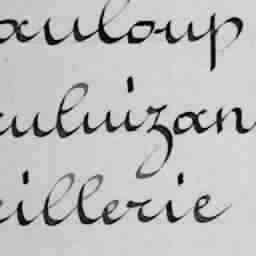 auloup
auluizan
eillerie